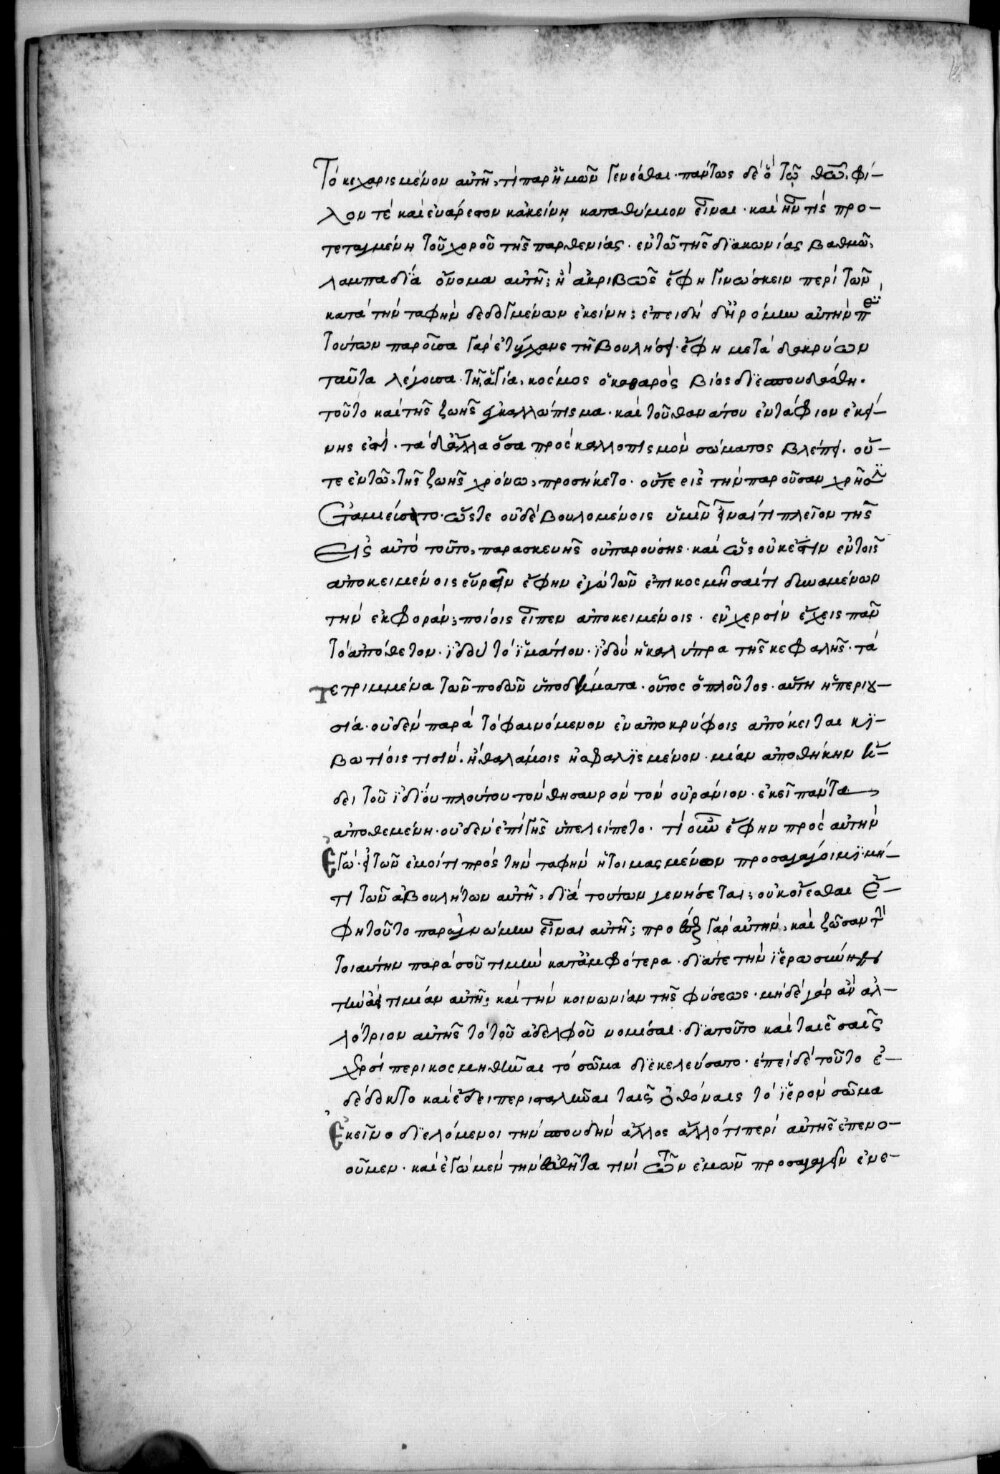 Τὸ κεχαρισμένον αὐτῆ, τί παρ ἡμῶν γενέσθαι· πάντως δὲ ὃ τῶ θῶ, φί-
λον τὲ καὶ εὐάρεστον κἀκείνη καταθύμιον εἶναι· καὶ ἦν τίς προ-
τεταγμένη τοῦ χοροῦ τῆς παρθενίας· ἐν τῶ τῆς διακονίας βαθμῶ,
λαμπαδία ὄνομα αὐτῆ; ἣ ἀκριβῶς ἔφη γινώσκειν περὶ τῶν
κατὰ τὴν ταφὴν δεδογμένων ἐκείνη; ἐπειδὴ δὲ ἠρόμην αὐτὴν π
τούτων παροῦσα γὰρ ἐτύγχανε τῆ βουλήσει· ἔφη μετὰ δακρύων
ταῦτα λέγουσα· τῆ ἁγία, κόσμος ὁ καθαρὸς βίος διεσπουδάσθη·
τοῦτο καὶ τῆς ζωῆς ἐγκαλλώπισμα· καὶ τοῦ θανάτου ἐντάφιον ἐκεί-
νης ἐστί· τὰ δὲ ἄλλα ὅσα πρὸς καλλοπισμὸν σώματος βλέπει· οὔ-
τε ἐν τῶ, τῆς ζωῆς χρόνω, προσήκετο· οὔτε εἰς τὴν παροῦσαν χρῆσιν
ἐταμιεύσατο· ὥστε οὐδὲ βουλομένοις ὑμῖν εἶναί τι πλεῖον τῆς
εἰς αὐτὸ τοῦτο, παρασκευῆς οὐ παρούσης· καὶ ὡς οὐκ ἔστιν ἐν τοῖς
ἀποκειμένοις εὑρεῖν ἔφην ἐγὼ τῶν ἐπικοσμῆσαί τι δυναμένων
τὴν ἐκφοράν; ποίοις εἶπεν ἀποκειμένοις· ἐν χερσὶν ἔχεις πᾶν
τὸ ἀπόθετον· ἰδοὺ τὸ ἱμάτιον· ἰδοὺ ἡ καλύπρα τῆς κεφαλῆς· τὰ
τετριμμένα τῶν ποδῶν ὑποδήματα· οὗτος ὁ πλοῦτος· αὕτη ἡ περιου-
σία· οὐδὲν παρὰ τὸ φαινόμενον ἐν ἀποκρύφοις ἀπόκειται κι-
βωτίοις τισίν· ἢ θαλάμοις ἠσφαλισμένον· μίαν ἀποθήκην ἤ-
δει τοῦ ἰδίου πλούτου τὸν θησαυρὸν τὸν οὐράνιον· ἐκεῖ πάντα
ἀποθεμένη· οὐδὲν ἐπὶ γῆς ὑπελείπετο· τί οὖν ἔφην πρὸς αὐτὴν
ἐγώ· εἰ τῶν ἐμοί τι πρὸς τὴν ταφὴν ἡτοιμασμένων προσαγάγοιμι μή-
τι τῶν ἀβουλήτων αὐτῆ, διὰ τούτων γενήσεται; οὐκ οἴεσθαι ἔ-
φη τοῦτο παρὰ γνώμην εἶναι αὐτῆ; προ γὰρ αὐτὴν, καὶ ζῶσαν τὴν
τοιαύτην παρὰ σοῦ τιμὴν κατ ἀμφότερα· διά τε τὴν ἱερωσύνην
τιμίαν αὐτῆ; καὶ τὴν κοινωνίαν τῆς φύσεως· μηδὲ γὰρ ἂν ἀλ-
λότριον αὐτῆς τὸ τοῦ ἀδελφοῦ νομίσαι· διατοῦτο καὶ ταῖς σαῖς
χερσὶ περικοσμηθῆναι τὸ σῶμα διεκελεύσατο· ἐπεὶ δὲ τοῦτο ἐ-
δέδοκτο καὶ ἔδει περισταλῆναι ταῖς ὀθόναις τὸ ἱερὸν σῶμα
ἐκεῖνο διελόμενοι τὴν σπουδὴν ἄλλος ἄλλό τι περὶ αὐτῆς ἐπενο-
οῦμεν· καὶ ἐγὼ μὲν τὴν ἐσθῆτα τινὶ τῶν ἐμῶν προσαγαγεῖν ἐνε-